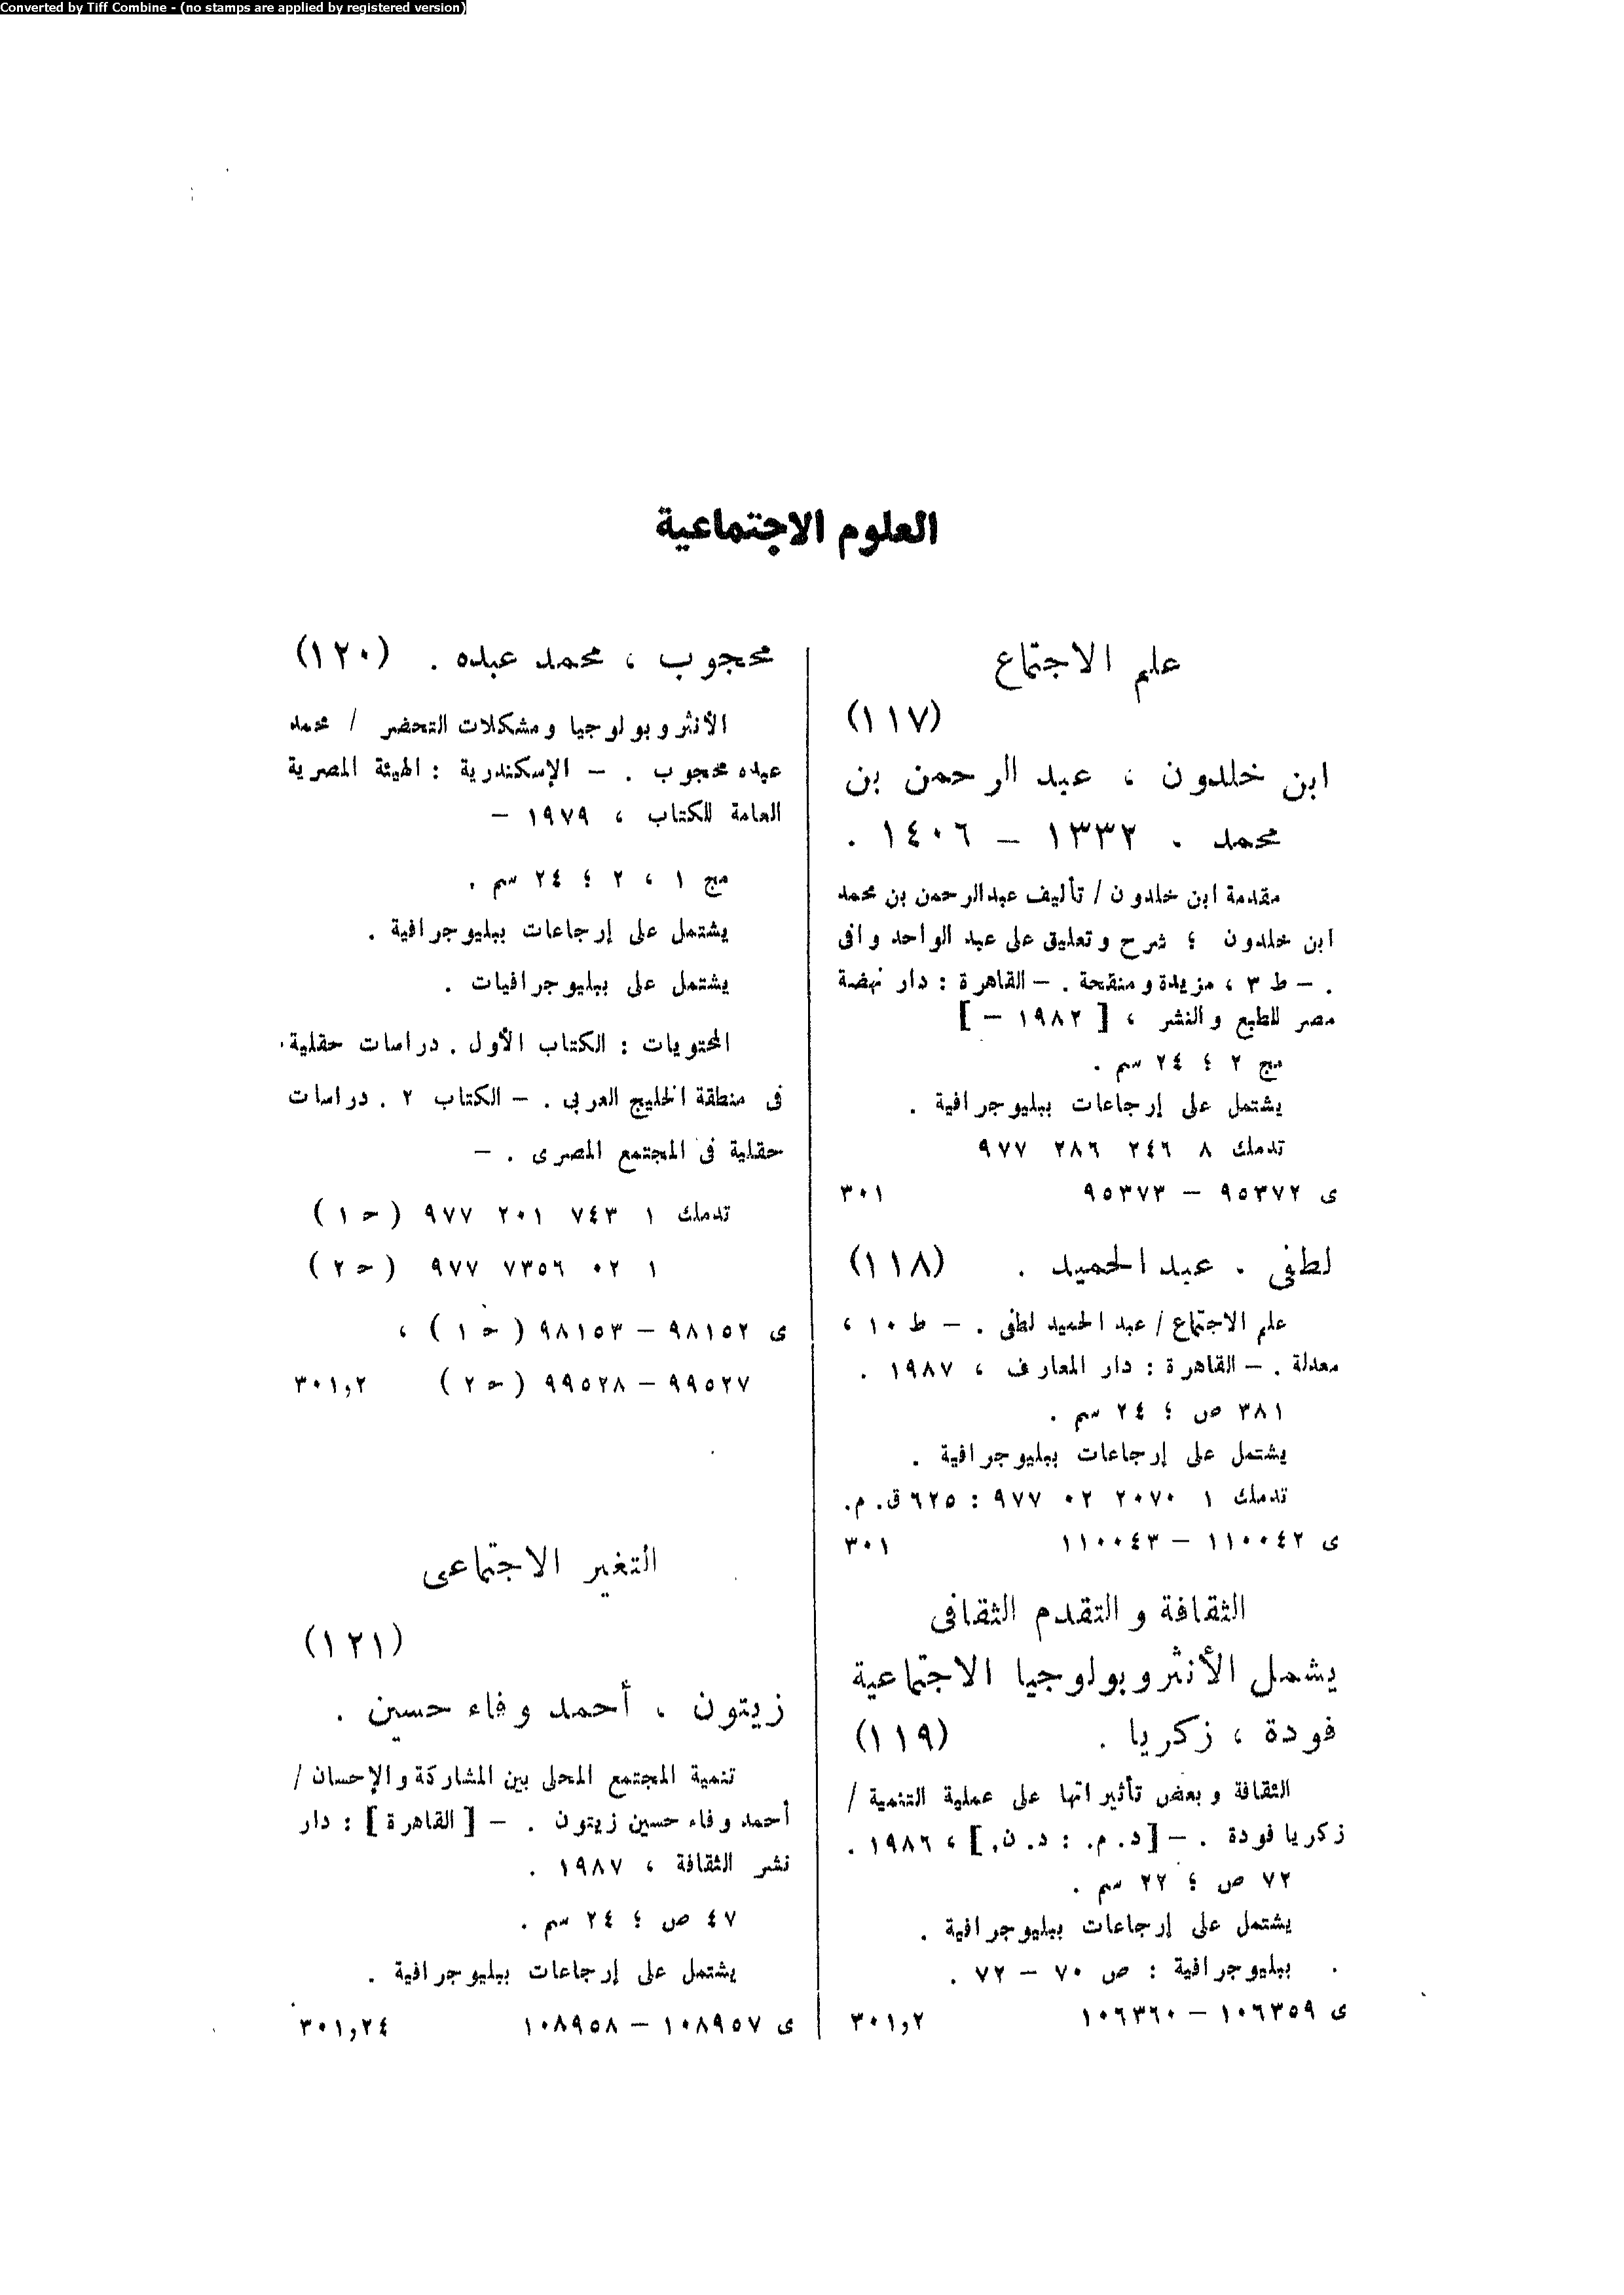 Converted by Tiff Combine - (no stamps are applied by registered version)
العلوم الاجتماعية
علم الاجتماع
(١١٧)
ابن خلدون ، عبد الرحمن بن
محمد . ١٣٣٢ – ١٤٠٦ .
مقدمة ابن خلدون / تأليف عبدالرحمن بن محمد
ابن خلدون ؛ شرح وتعليق على عبد الواحد وافى
. – ط ٣ ، مزيدة ومنقحة . – القاهرة : دار نهضة
مصر للطبع والنشر ، [ ١٩٨٢ – ]
مج ٢ ؛ ٢٤ سم .
يشتمل على إرجاعات ببليوجرافية .
تدمك ٨ ٢٤٦ ٢٨٦ ٩٧٧
ى ٩٥٣٧٢ – ٩٥٣٧٣ ٣٠١
لطفى . عبد الحميد . (١١٨)
علم الاجتماع / عبد الحميد لطفى . – ط ١٠ ،
معدلة . – القاهرة : دار المعارف ، ١٩٨٧ .
٣٨١ ص ؛ ٢٤ سم .
يشتمل على إرجاعات ببليوجرافية .
تدمك ١ ٢٠٧٠ ٠٢ ٩٧٧ : ٦٢٥ ق. م.
ى ١١٠٠٤٢ – ١١٠٠٤٣ ٣٠١
الثقافة والتقدم الثقافى
يشمل الأنثروبولوجيا الاجتماعية
فودة ، زكريا . (١١٩)
الثقافة وبعض تأثيراتها على عملية التنمية /
زكريا فودة . – [د. م. : د. ن.] ، ١٩٨٦ .
٧٢ ص ؛ ٢٢ سم .
يشتمل على إرجاعات ببليوجرافية .
ببليوجرافية : ص ٧٠ – ٧٢ .
ى ١٠٦٣٥٩ – ١٠٦٣٦٠ ٣٠١,٢
محجوب ، محمد عبده . (١٢٠)
الأنثروبولوجيا ومشكلات التحضر / محمد
عبده محجوب . – الإسكندرية : الهيئة المصرية
العامة للكتاب ، ١٩٧٩ –
مج ١ ، ٢ ؛ ٢٤ سم .
يشتمل على إرجاعات ببليوجرافية .
يشتمل على ببليوجرافيات .
المحتويات : الكتاب الأول . دراسات حقلية
فى منطقة الخليج العربى . – الكتاب ٢ . دراسات
حقلية فى المجتمع المصرى . –
تدمك ١ ٧٤٣ ٢٠١ ٩٧٧ (حـ ١)
١ ٠٢ ٧٣٥٦ ٩٧٧ (حـ ٢)
ى ٩٨١٥٢ – ٩٨١٥٣ (حـ ١) ،
٩٩٥٢٧ – ٩٩٥٢٨ (حـ ٢) ٣٠١,٢
التغير الاجتماعى
(١٢١)
زيتون ، أحمد وفاء حسين .
تنمية المجتمع المحلى بين المشاركة والإحسان /
أحمد وفاء حسين زيتون . – [القاهرة] : دار
نشر الثقافة ، ١٩٨٧ .
٤٧ ص ؛ ٢٤ سم .
يشتمل على إرجاعات ببليوجرافية .
ى ١٠٨٩٥٧ – ١٠٨٩٥٨ ٣٠١,٢٤